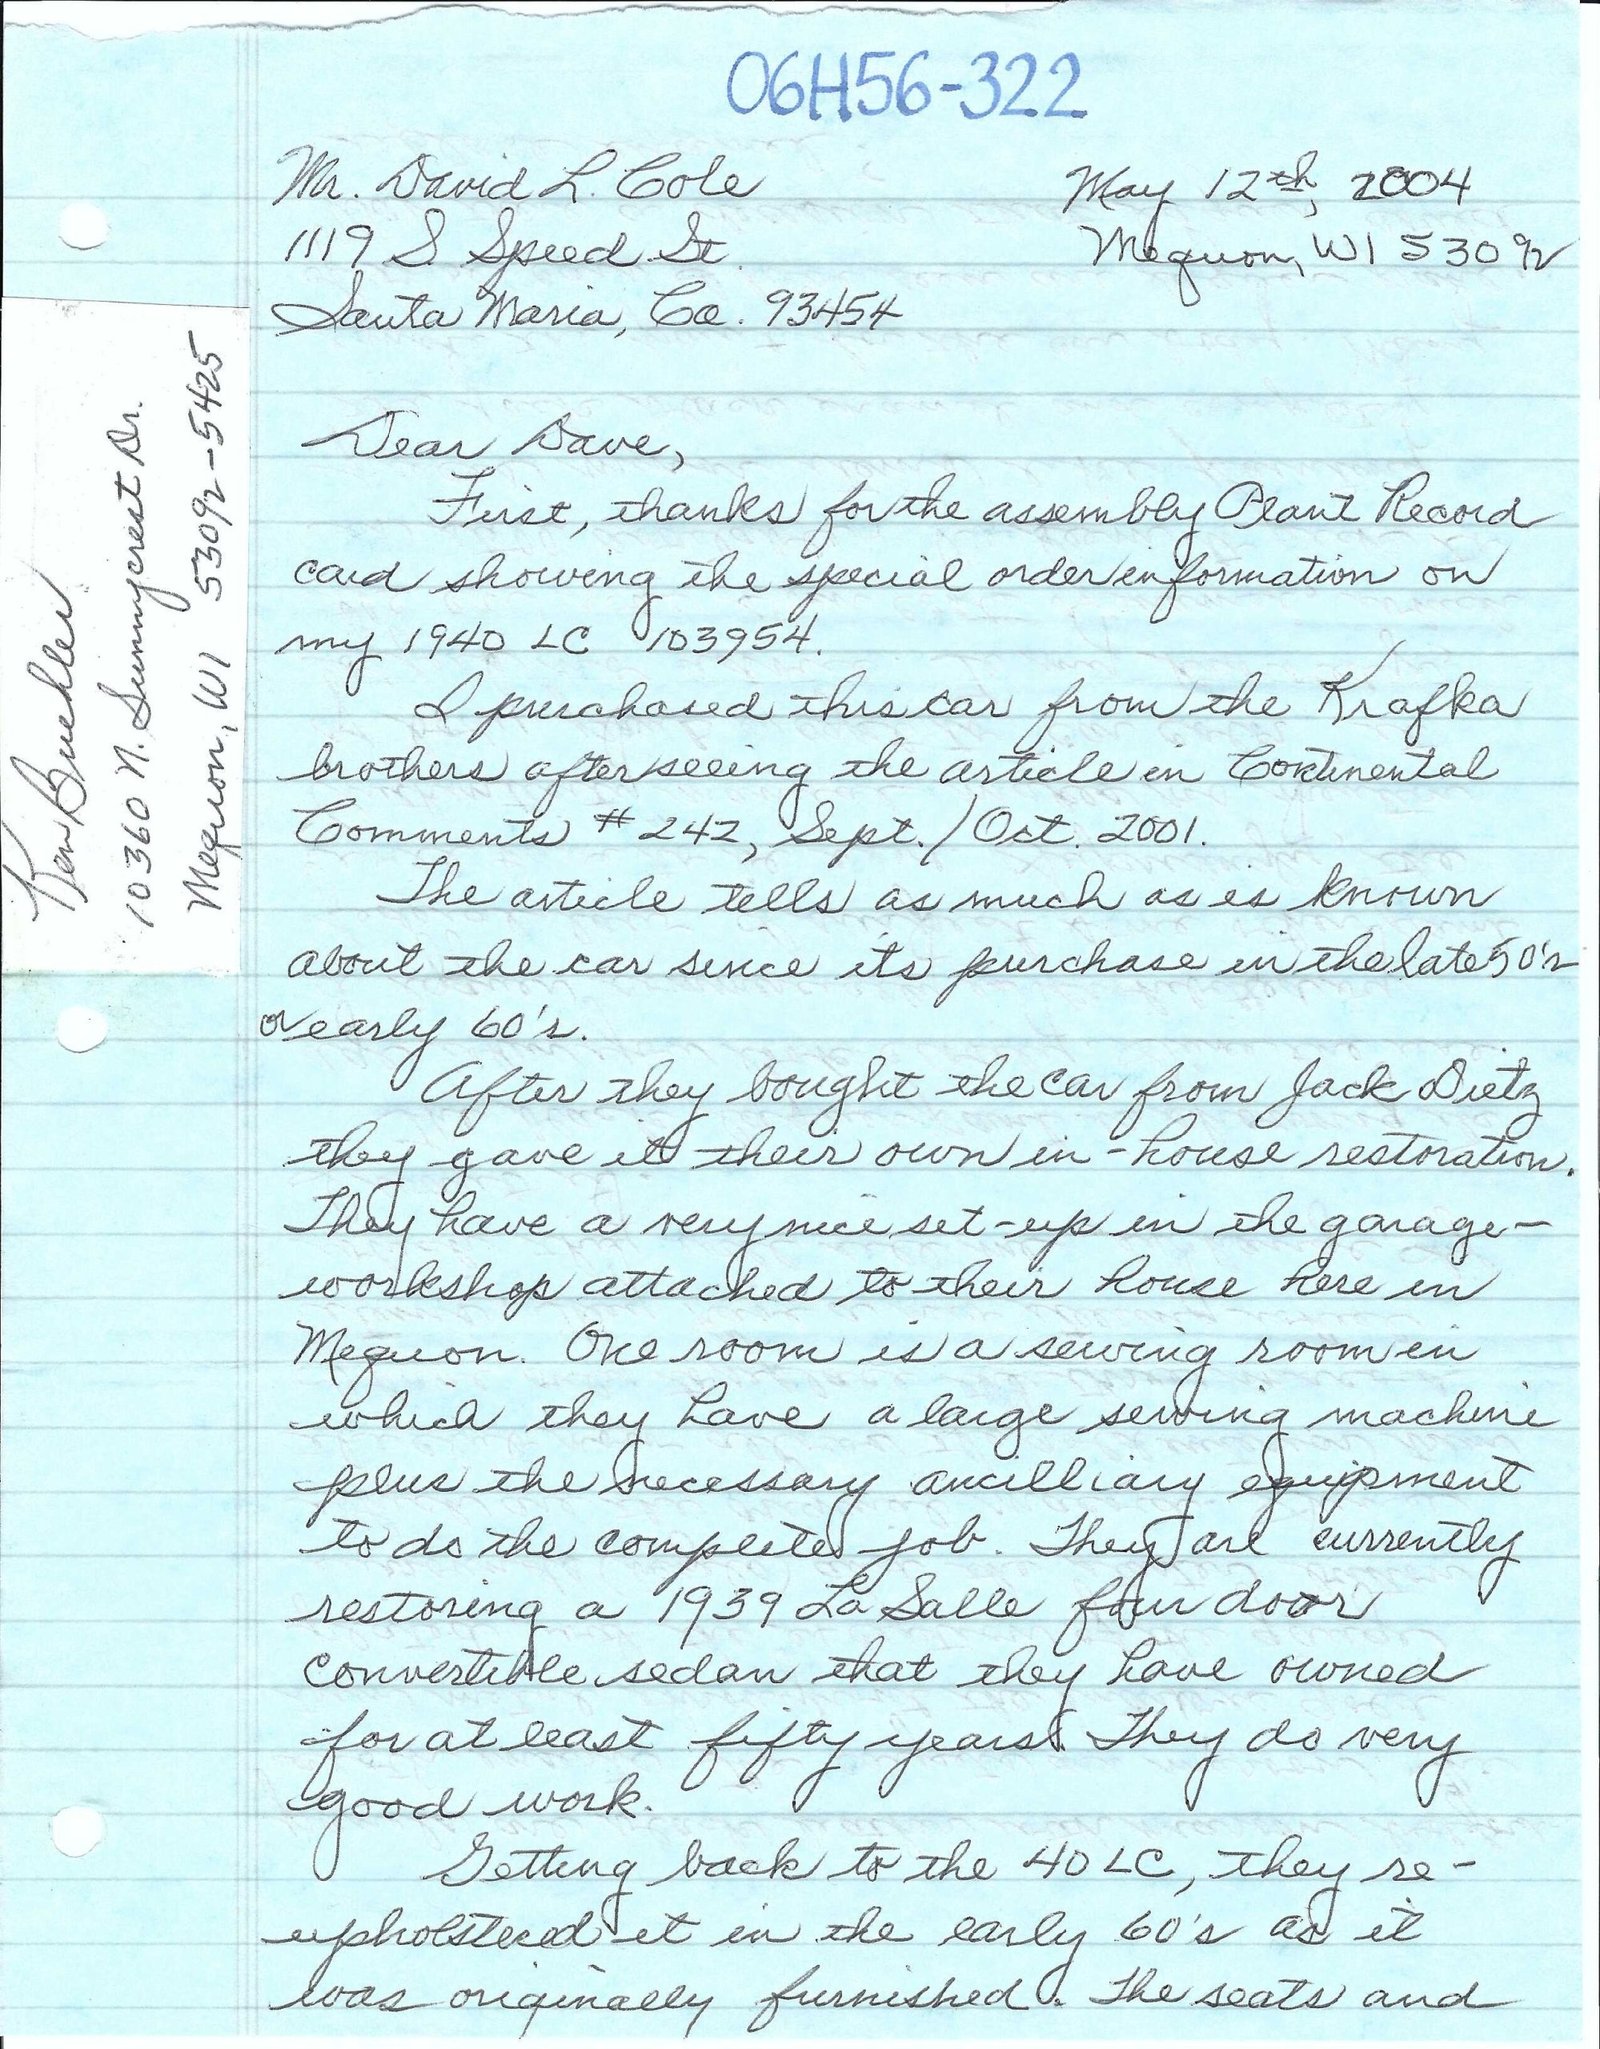 06H56-322
Mr. David L. Cole
1119 S. Speed St.
Santa Maria, Ca. 93454
May 12th, 2004
Mequon, WI 53092
Ken Buehler
10360 N. Sunnycrest Dr.
Mequon, WI 53092-5425
Dear Dave,
First, thanks for the assembly Plant Record
card showing the special order information on
my 1940 LC 103954.
I purchased this car from the Krafka
brothers after seeing the article in Continental
Comments #242, Sept./Oct. 2001.
The article tells as much as is known
about the car since its purchase in the late 50's
or early 60's.
After they bought the car from Jack Dietz
they gave it their own in-house restoration.
They have a very nice set-up in the garage-
workshop attached to their house here in
Mequon. One room is a sewing room in
which they have a large sewing machine
plus the necessary ancilliary equipment
to do the complete job. They are currently
restoring a 1939 La Salle four door
convertible sedan that they have owned
for at least fifty years. They do very
good work.
Getting back to the 40 LC, they re-
upholstered it in the early 60's as it
was originally furnished. The seats and